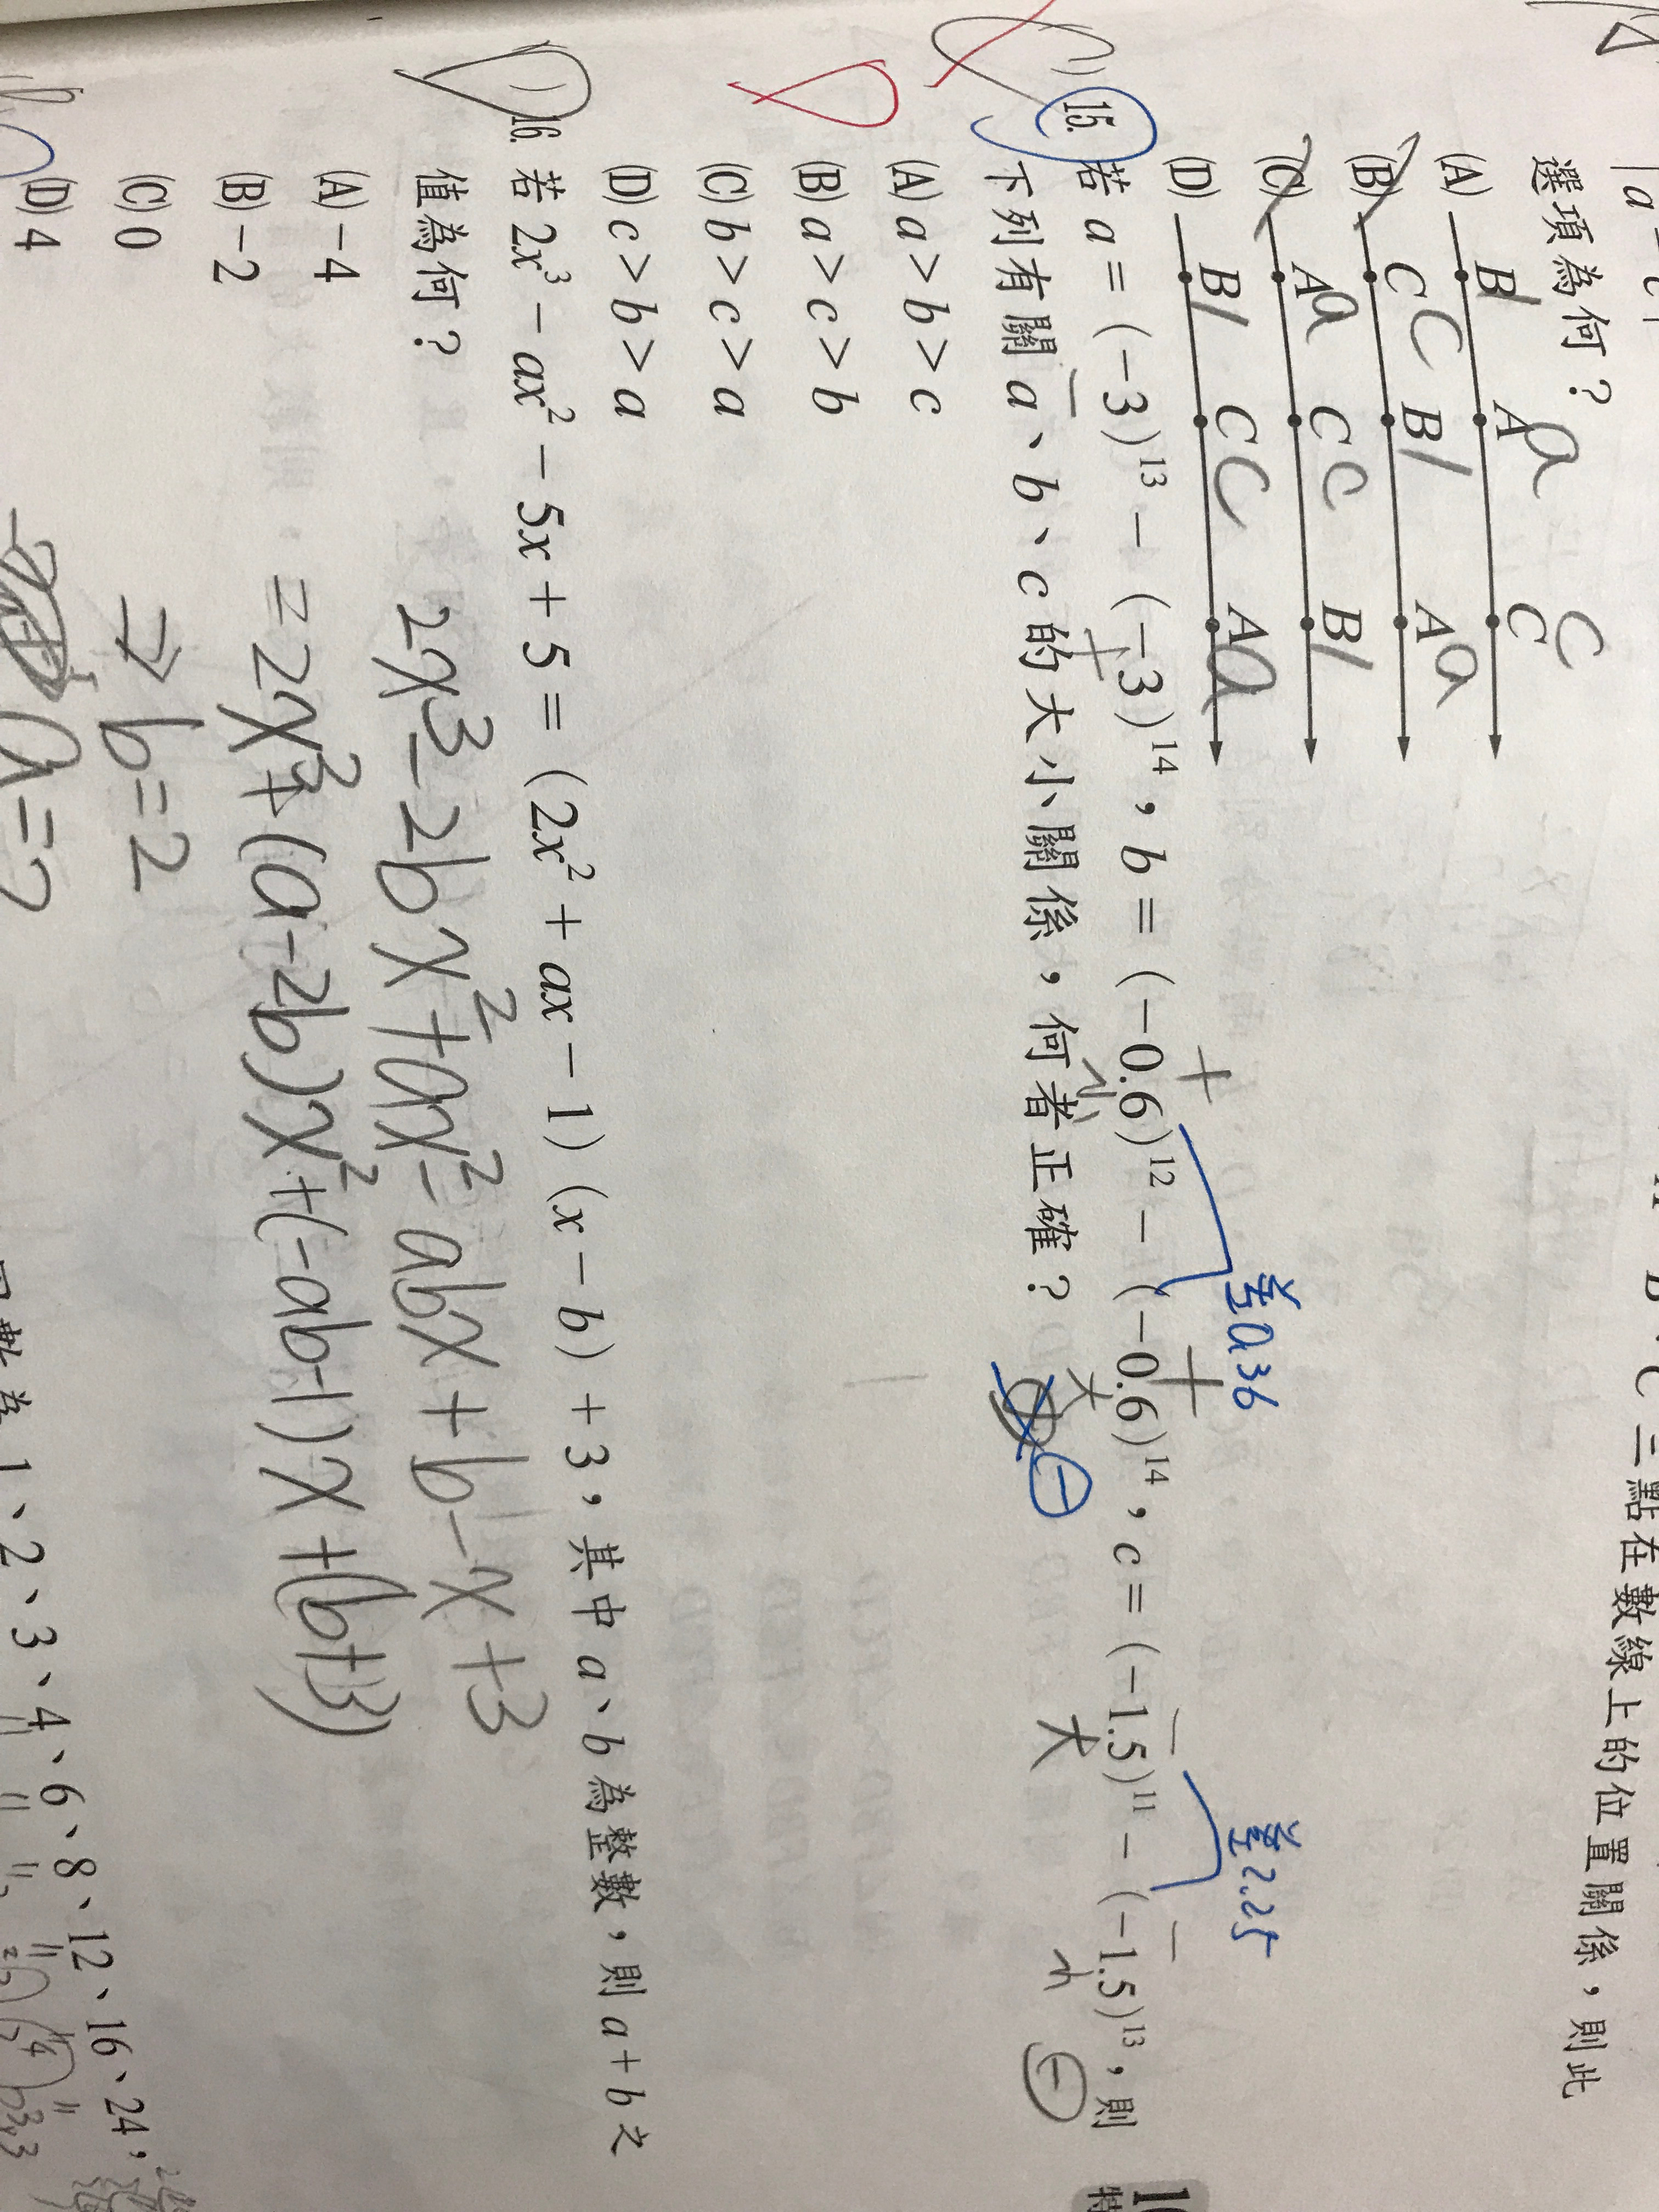 A、B、C三點在數線上的位置關係，則此
選項為何？
(A) B A a C C
(B) C C B A a
(C) A a C C B
(D) B C C A a
15. 若 a = (-3)^13 - (-3)^14，b = (-0.6)^12 - (-0.6)^14，c = (-1.5)^11 - (-1.5)^13，則
差0.36
差2.25
下列有關 a、b、c 的大小關係，何者正確？
(A) a > b > c
(B) a > c > b
(C) b > c > a
(D) c > b > a
16. 若 2x³ - ax² - 5x + 5 = (2x² + ax - 1)(x - b) + 3，其中 a、b 為整數，則 a + b 之
值為何？
(A) -4
(B) -2
(C) 0
(D) 4
2x³-2bx²+ax²-abx+b-x+3
=2x³+(a-2b)x²+(-ab-1)x+(b+3)
⇒ b=2
a=2
1、2、3、4、6、8、12、16、24，